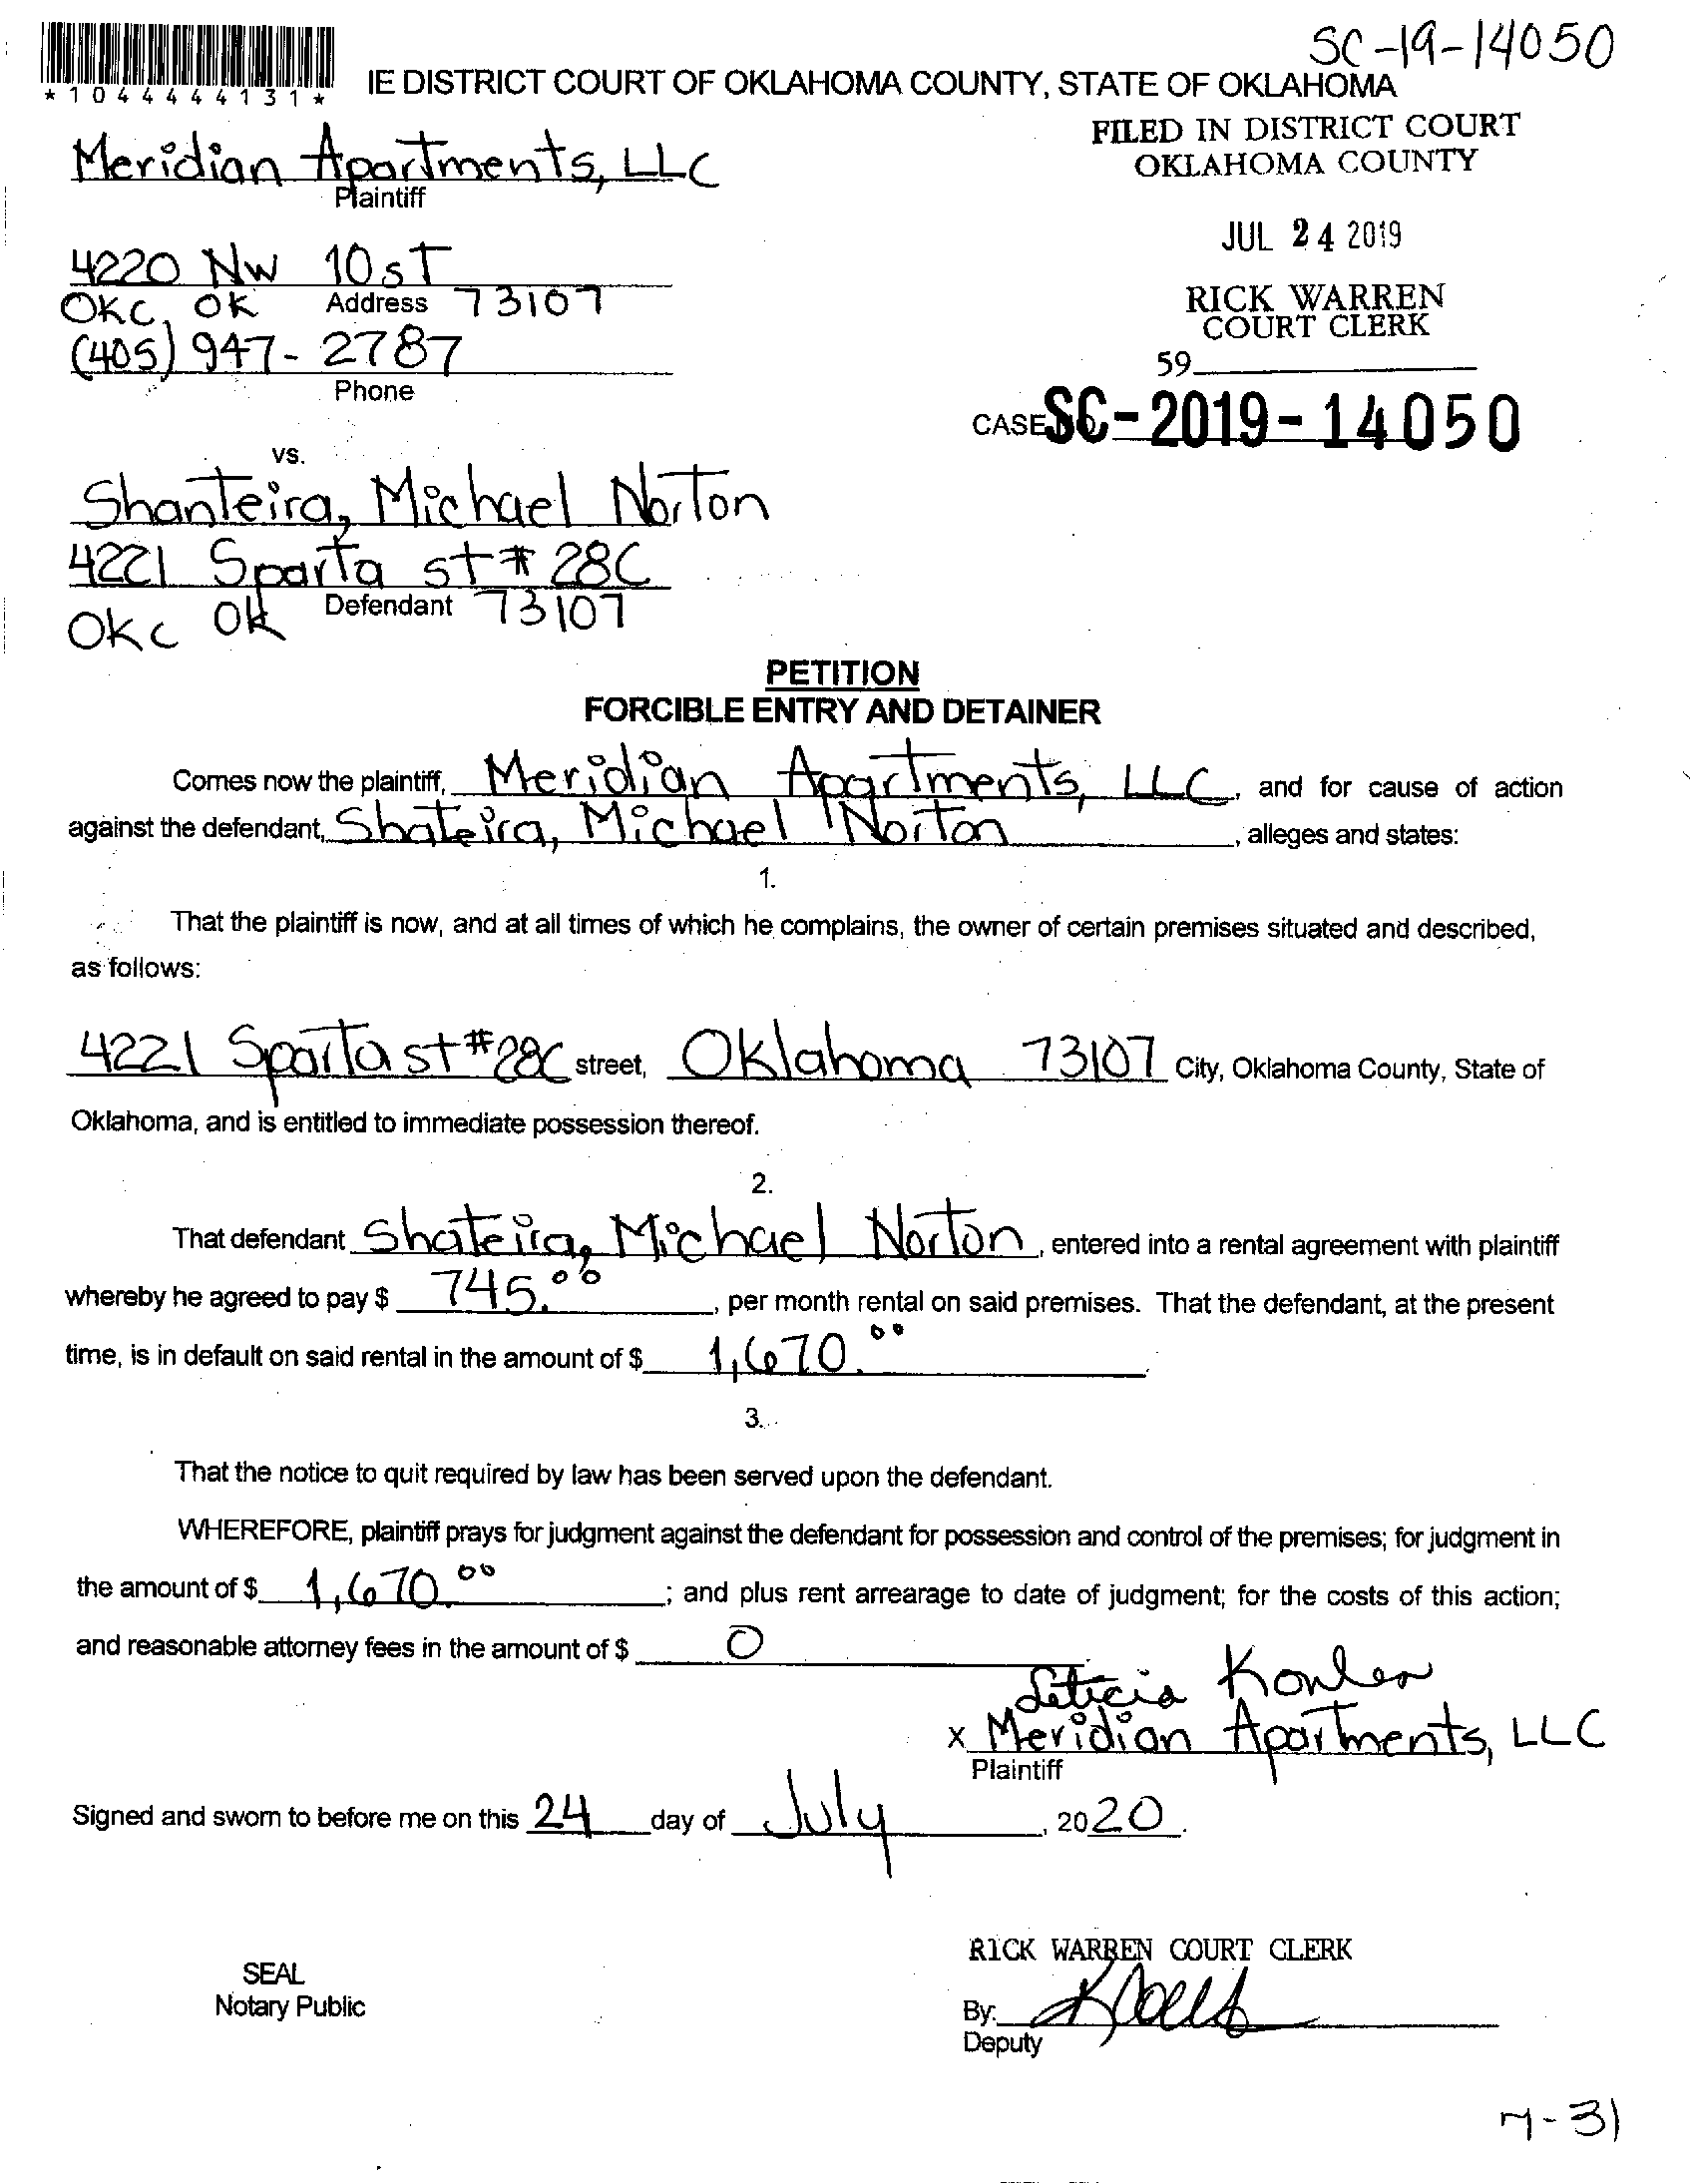 SC-19-14050
*1044444131*
IE DISTRICT COURT OF OKLAHOMA COUNTY, STATE OF OKLAHOMA
FILED IN DISTRICT COURT
OKLAHOMA COUNTY
Meridian Apartments, LLC
Plaintiff
JUL 24 2019
4220 NW 10 ST
OKC, OK Address 73107
RICK WARREN
COURT CLERK
(405) 947-2787
Phone
59
CASE SC-2019-14050
vs.
Shanteira, Michael Norton
4221 Sparta st # 28C
Defendant
OKC OK 73107
PETITION
FORCIBLE ENTRY AND DETAINER
Comes now the plaintiff, Meridian Apartments, LLC, and for cause of action
against the defendant, Shateira, Michael Norton, alleges and states:
1.
That the plaintiff is now, and at all times of which he complains, the owner of certain premises situated and described,
as follows:
4221 Sparta st #28C street, Oklahoma 73107 City, Oklahoma County, State of
Oklahoma, and is entitled to immediate possession thereof.
2.
That defendant Shateira, Michael Norton, entered into a rental agreement with plaintiff
whereby he agreed to pay $ 745.00, per month rental on said premises. That the defendant, at the present
time, is in default on said rental in the amount of $ 1,670.00.
3.
That the notice to quit required by law has been served upon the defendant.
WHEREFORE, plaintiff prays for judgment against the defendant for possession and control of the premises; for judgment in
the amount of $ 1,670.00; and plus rent arrearage to date of judgment; for the costs of this action;
and reasonable attorney fees in the amount of $ 0.
Leticia
x Meridian Apartments, LLC
Plaintiff
Signed and sworn to before me on this 24 day of July, 2020.
RICK WARREN COURT CLERK
SEAL
Notary Public
By:
Deputy
7-31